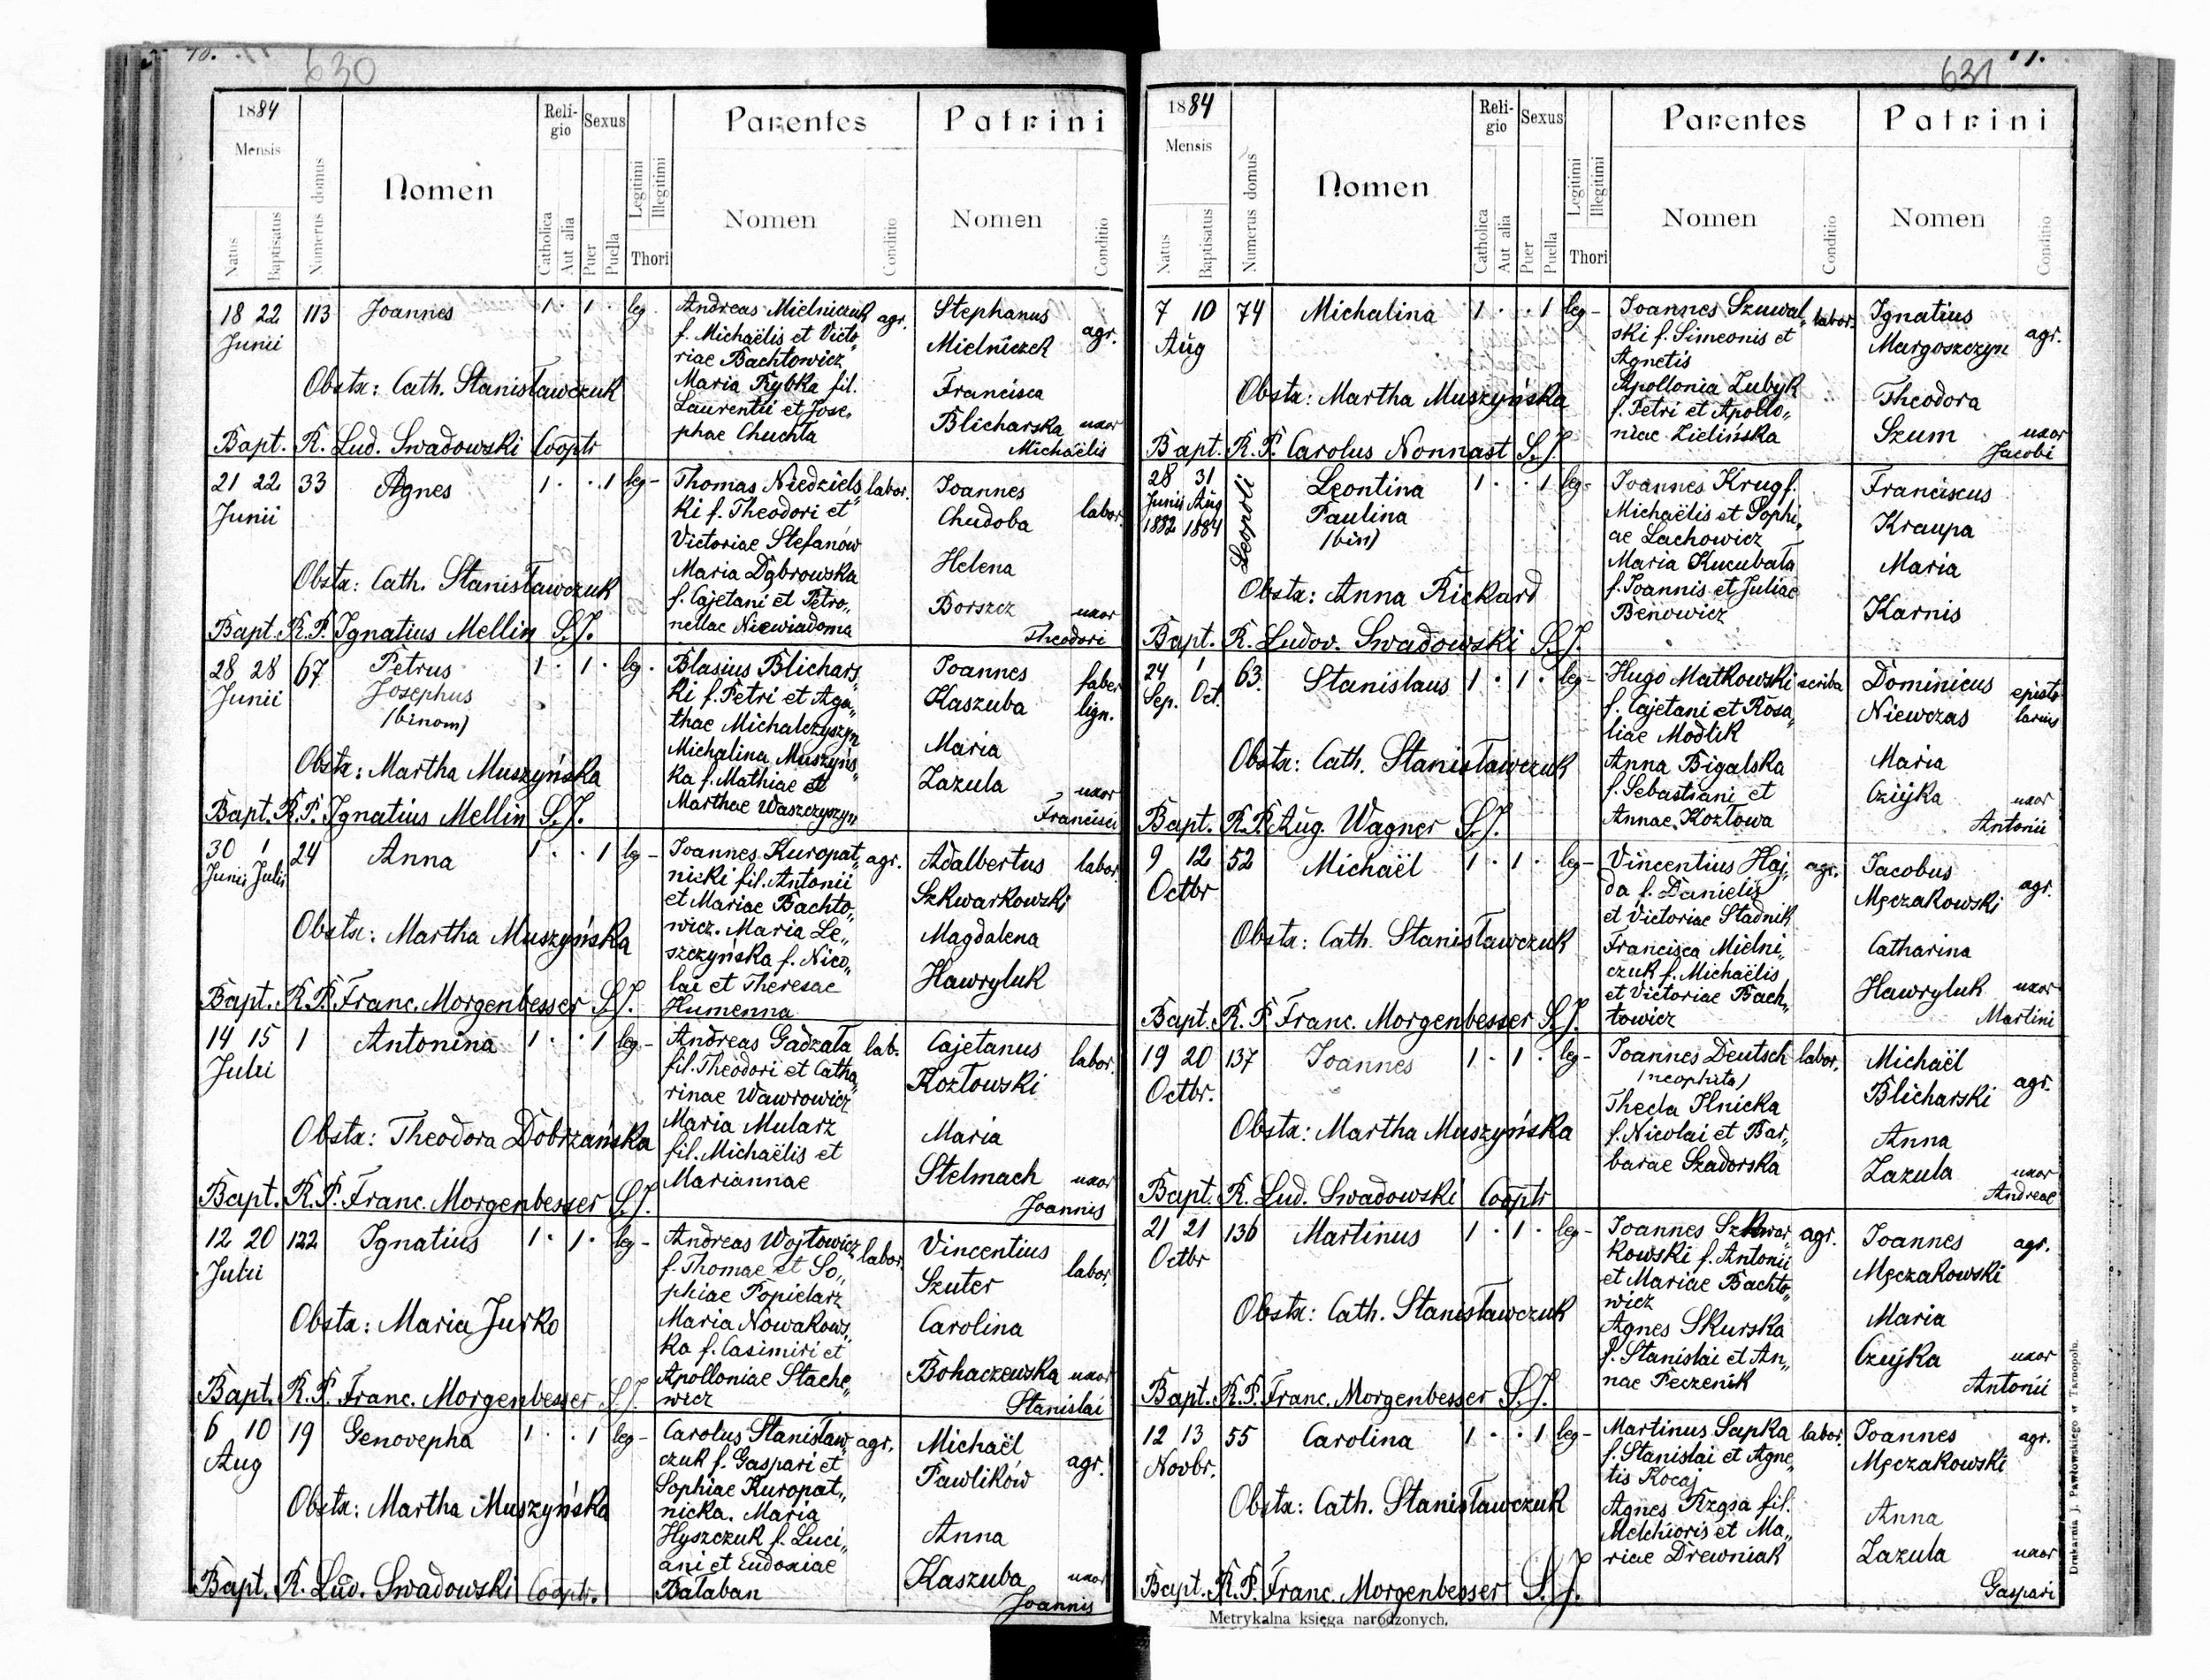 630
1884
Mensis
Natus
Baptisatus
Numerus domus
Nomen
Religio
Catholica
Aut alia
Sexus
Puer
Puella
Legitimi
Illegitimi
Thori
Parentes
Nomen
Conditio
Patrini
Nomen
Conditio
18 22 113 Joannes 1 · 1 · leg. Andreas Mielniczuk agr. Stephanus
Junii f. Michaëlis et Victo„ Mielniczek agr.
riae Bachtowicz
Obstx: Cath. Stanisławczuk Maria Rybka fil. Francisca
Laurentii et Jose„ Blicharska uxor
Bapt. R. Lud. Swadowski Cooptr phae Chuchta Michaëlis
21 22 33 Agnes 1 · · 1 leg- Thomas Niedziels„ labor. Joannes
Junii ki f. Theodori et Chudoba labor.
Victoriae Stefanów
Obstx: Cath. Stanisławczuk Maria Dąbrowska Helena
f. Cajetani et Petro„ Borszcz uxor
Bapt. R.P. Ignatius Mellin S.J. nellae Niewiadoma Theodori
28 28 67 Petrus 1 · 1 · leg. Blasius Blichars„ Joannes faber
Junii Josephus ki f. Petri et Aga„ Kaszuba lign.
(binom) thae Michalczyszyn
Obstx: Martha Muszyńska Michalina Muszyńs„ Maria
ka f. Mathiae et Zazula uxor
Bapt. R.P. Ignatius Mellin S.J. Marthae Waszczyszyn Francisci
30 1 24 Anna 1 · · 1 leg- Joannes Kuropat„ agr. Adalbertus labor.
Junii Julii nicki fil. Antonii Szkwarkowski
et Mariae Bachto„
Obstx: Martha Muszyńska wicz. Maria Le„ Magdalena
szczyńska f. Nico„ Hawryluk
Bapt. R.P. Franc. Morgenbesser S.J. lai et Theresae
Humenna
14 15 1 Antonina 1 · · 1 leg- Andreas Gadzała lab. Cajetanus labor.
Julii fil. Theodori et Catha„ Kozłowski
rinae Wawrowicz
Obstx: Theodora Dobrzańska Maria Mularz Maria
fil. Michaëlis et Stelmach uxor
Bapt. R.P. Franc. Morgenbesser S.J. Mariannae Joannis
12 20 122 Ignatius 1 · 1 · leg- Andreas Wojtowicz labor. Vincentius
Julii f. Thomae et So„ Szuter labor.
phiae Popielarz
Obstx: Maria Jurko Maria Nowakows„ Carolina
ka f. Casimiri et
Apolloniae Stache„ Bohaczewska uxor
Bapt. R.P. Franc. Morgenbesser S.J. wicz Stanislai
6 10 19 Genovepha 1 · · 1 leg- Carolus Stanisław„ agr. Michaël
Aug czuk f. Gaspari et Pawlików agr.
Sophiae Kuropat„
Obstx: Martha Muszyńska nicka. Maria Anna
Hyszczuk f. Luci„
ani et Eudoxiae Kaszuba uxor
Bapt. R. Lud. Swadowski Cooptr. Bałaban Joannis
631
1884
Mensis
Natus
Baptisatus
Numerus domus
Nomen
Religio
Catholica
Aut alia
Sexus
Puer
Puella
Legitimi
Illegitimi
Thori
Parentes
Nomen
Conditio
Patrini
Nomen
Conditio
7 10 74 Michalina 1 · · 1 leg- Joannes Szuwal„ labor. Ignatius
Aug ski f. Simeonis et Margoszczyn agr.
Agnetis
Obstx: Martha Muszyńska Apollonia Zubyk Theodora
f. Petri et Apollo„ Szum uxor
Bapt. R.P. Carolus Nonnast S.J. niae Zielińska Jacobi
28 31 Leopoli Leontina 1 · · 1 leg- Joannes Krug f. Franciscus
Junii Aug Paulina Michaëlis et Sophi„ Kraupa
1882 1884 (bin) ae Lachowicz
Maria Kucubała Maria
Obstx: Anna Rickard f. Joannis et Juliae Karnis
Benowicz
Bapt. R. Ludov. Swadowski S.J.
24 1 63. Stanislaus 1 · 1 · leg- Hugo Matkowski scriba Dominicus episto
Sep. Oct. f. Cajetani et Rosa„ Niewczas larius
liae Modlik
Obstx: Cath. Stanisławczuk Anna Bigalska Maria
f. Sebastiani et Czujka uxor
Bapt. R.P. Aug. Wagner S.J. Annae Kozłowa Antonii
9 12 52 Michaël 1 · 1 · leg- Vincentius Haj„ agr. Jacobus
Octbr da f. Danielis Męczakowski agr.
et Victoriae Stadnik
Obstx: Cath. Stanisławczuk Francisca Mielni„ Catharina
czuk f. Michaëlis
et Victoriae Bach„ Hawryluk uxor
Bapt. R.P. Franc. Morgenbesser S.J. towicz Martini
19 20 137 Joannes 1 · 1 · leg- Joannes Deutsch labor. Michaël
Octbr. (neophita) Blicharski agr.
Thecla Ilnicka
Obstx: Martha Muszyńska f. Nicolai et Bar„ Anna
barae Szadorska Zazula uxor
Bapt. R. Lud. Swadowski Cooptr Andreae
21 21 136 Martinus 1 · 1 · leg- Joannes Szkwar„ agr. Joannes agr.
Octbr kowski f. Antonii Męczakowski
et Mariae Bachto„
wicz Maria
Obstx: Cath. Stanisławczuk Agnes Skurska
f. Stanislai et An„ Czujka uxor
Bapt. R.P. Franc. Morgenbesser S.J. nae Peczenik Antonii
12 13 55 Carolina 1 · · 1 leg- Martinus Sapka labor. Joannes agr.
Novbr. f. Stanislai et Agne„ Męczakowski
tis Kocaj
Obstx: Cath. Stanisławczuk Agnes Rzgsa fil. Anna
Melchioris et Ma„
riae Drewniak Zazula uxor
Bapt. R.P. Franc. Morgenbesser S.J. Gaspari
Metrykalna księga narodzonych.
Drukarnia J. Pawłowskiego w Tarnopolu.